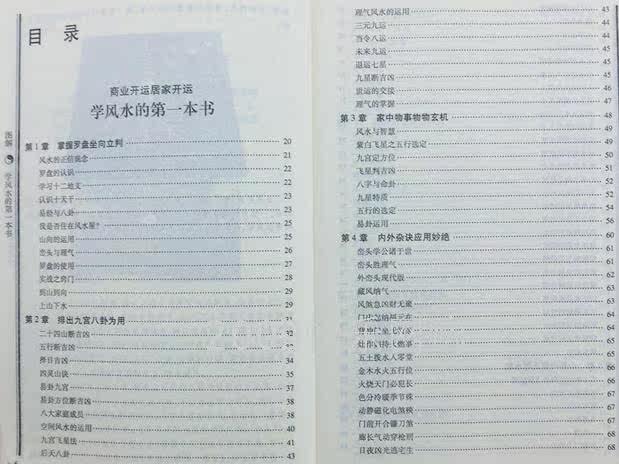 目 录
商业开运居家开运
学风水的第一本书
图解
学风水的第一本书
第1章 掌握罗盘坐向立判 20
风水的正信观念 21
罗盘的认识 22
学习十二地支 22
认识十天干 23
易经与八卦 23
我是否住在风水屋? 25
山向的运用 25
峦头与理气 26
罗盘的使用 27
实战之窍门 28
到山到向 29
上山下水 29
第2章 排出九宫八卦为用 31
二十四山断吉凶 32
五行断吉凶
择日吉凶 34
四灵山诀 35
易卦九宫 37
易卦方位断吉凶 38
八大家庭成员 38
空间风水的运用 40
九宫飞星法 41
后天八卦 43
理气风水的运用 43
三元九运 44
当令八运 44
未来九运 45
退运七星 45
九星断吉凶 45
世运的交接 46
理气的掌握 47
第3章 家中物事物物玄机 48
风水与智慧 49
紫白飞星之五行选定 49
九宫定方位 50
飞星判吉凶 50
八字与命卦 52
九星特质 52
五行的选定 54
易卦运用 56
第4章 内外杂诀应用妙绝 60
峦头学公诸于世 61
峦头胜理气 61
外峦头现代版 62
藏风纳气 63
风煞急凶财无聚 63
64
65
65
五土拨水人零堂 66
金木水火五行位 66
火烧天门必犯长 66
色分冷暖季节殊 67
动静磁化电煞殃 67
门前开合镰刀煞 67
廊长气动穿枪别 68
日夜凶光逃宅生 68